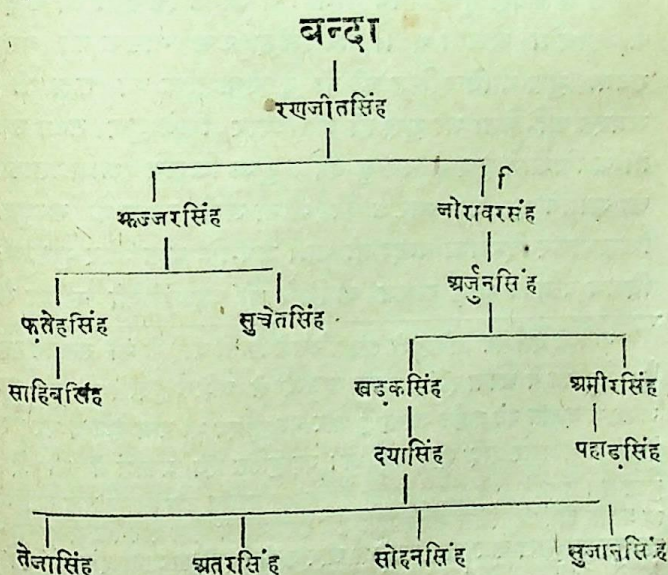 बन्दा
रणजीतसिंह
झज्जरसिंह जोरावरसिंह
अर्जुनसिंह
फ़तेहसिंह सुचेतसिंह
साहिबसिंह खड़कसिंह अमीरसिंह
दयासिंह पहाड़सिंह
तेजासिंह अतरसिंह सोहनसिंह सुजानसिंह